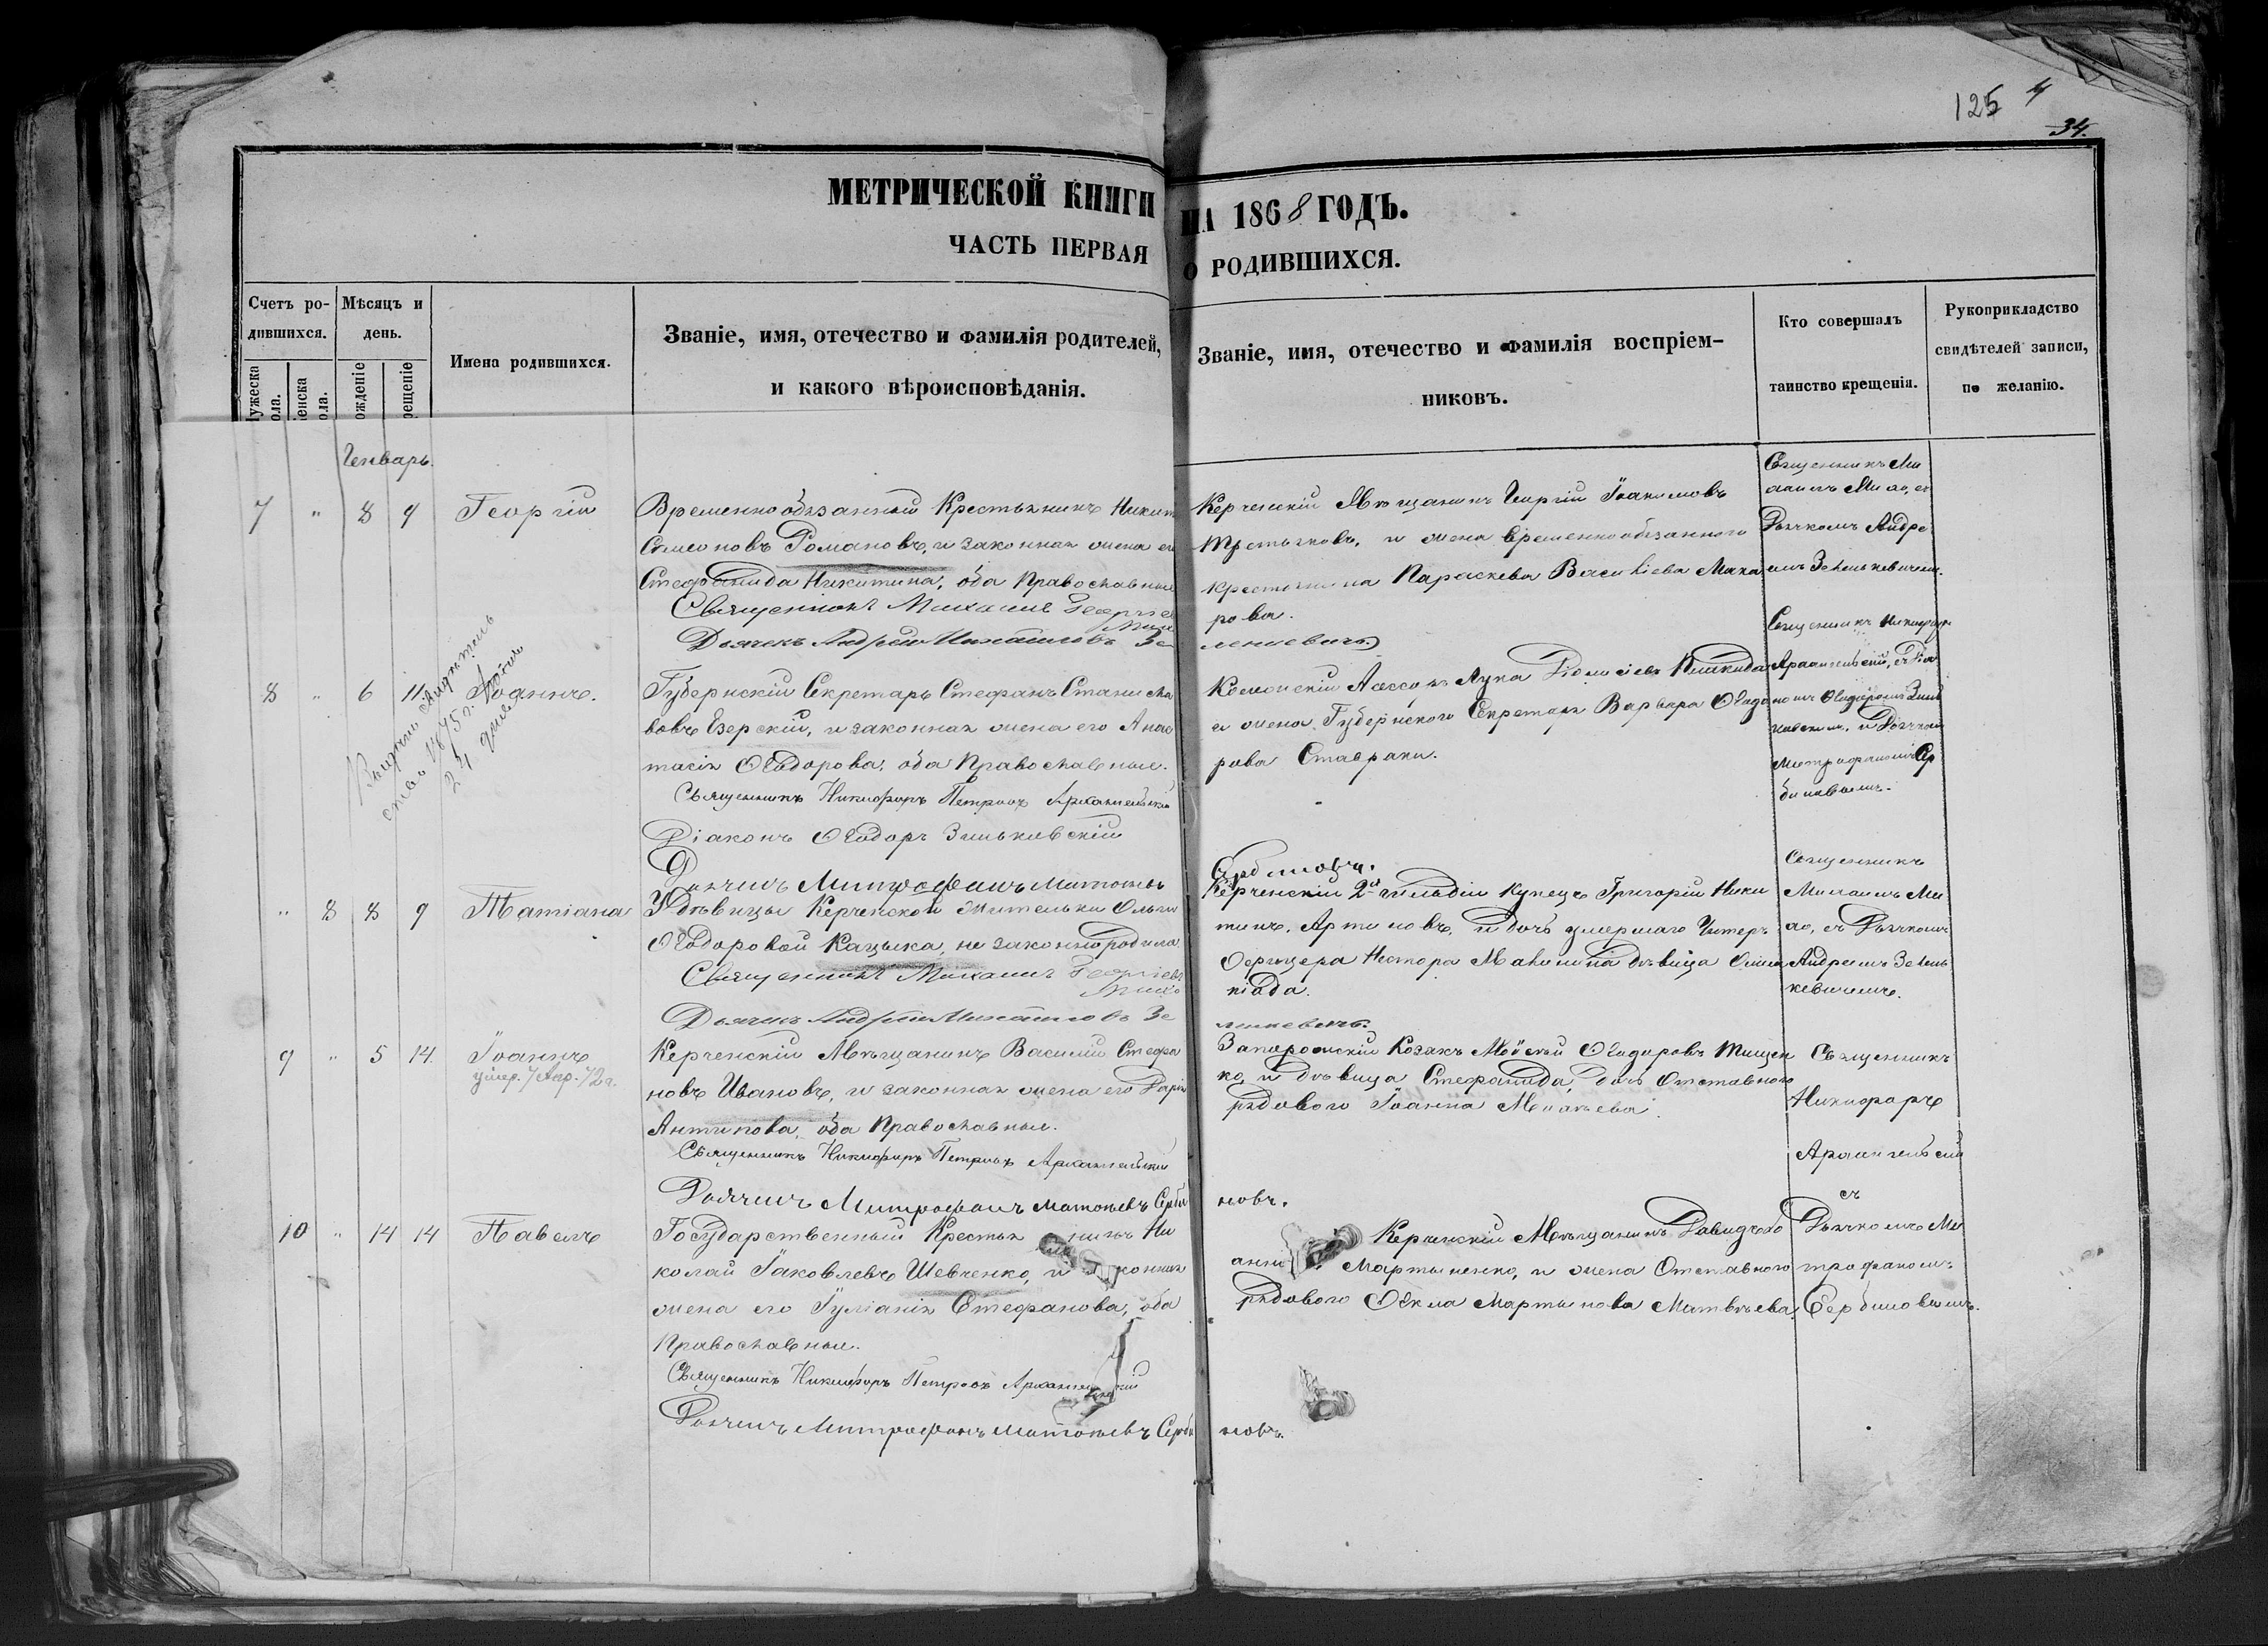 125 4
34.
МЕТРИЧЕСКОЙ КНИГИ НА 1868 ГОДЪ.
ЧАСТЬ ПЕРВАЯ О РОДИВШИХСЯ.
Счетъ ро-
дившихся.
Мѣсяцъ и
день.
Имена родившихся.
Званіе, имя, отечество и фамилія родителей,
и какого вѣроисповѣданія.
Званіе, имя, отечество и фамилія воспріем-
никовъ.
Кто совершалъ
таинство крещенія.
Рукоприкладство
свидѣтелей записи,
по желанію.
ужеска
ола.
енска
ола.
ожденіе
рещеніе
Генварь.
7 " 8 9 Георгій
Временнообязанный Крестьянинъ Никит
Симеоновъ Романовъ, и законная жена ег
Стефанида Никитина, оба Православные
Священникъ Михаилъ Георгіев
Дьячекъ Андрей Михайловъ Зе
Керченскій Мѣщанинъ Георгій Іоакимовъ
Третьяковъ, и жена временнообязаннаго
крестьянина Параскева Василіева Мака
рова.
ленкевичъ
Священникъ Ми
хаилъ Михо, съ
Дьячкомъ Андре
емъ Зеленкевичемъ.
8 " 6 11 Іоаннъ.
1875 г.
24 дня
Губернскій Секретарь Стефанъ Станисла
вовъ Езерскій, и законная жена его Анас
тасія Ѳеодорова, оба Православные.
Священникъ Никифоръ Петровъ Архангельскій
Діаконъ Ѳеодоръ Зиньковскій
Дьячекъ Митрофанъ Матѳеевъ
Ассесоръ Лука
и жена Губернскаго Секретаря Варвара Ѳеодо
рова Ставраки.
Сербиновъ.
Священникъ Никифоръ
Архангельскій, съ Діа
кономъ Ѳеодоромъ Зинь
ковскимъ, и Дьячкомъ
Митрофаномъ Сер
биновымъ.
" 8 8 9 Татіана
У дѣвицы Керченской жительки Ольги
Ѳеодоровой Кацыка, незаконнорождена
Священникъ Михаилъ Георгіевъ
Михо
Дьячекъ Андрей Михайловъ Зе
Керченскій 2й гильдіи купецъ Григорій Ники
тинъ Артиновъ, и дочь умершаго Унтеръ
Офицера Нестора Малинина дѣвица Олим
піада.
ленкевичъ.
Священникъ
Михаилъ Ми
хо, съ Дьячкомъ
Андреемъ Зелен
кевичемъ.
9 " 5 14 Іоаннъ
умер. 7 Апр. 72 г.
Керченскій Мѣщанинъ Василій Стефа
новъ Ивановъ, и законная жена его Дарія
Антипова, оба Православные.
Священникъ Никифоръ Петровъ Архангельскій
Дьячекъ Митрофанъ Матѳеевъ Серби
Запорожскій Козакъ Моисей Ѳеодоровъ Тищен
ко, и дѣвица Стефанида, дочь Отставного
рядового Іоанна
новъ.
Священникъ
Никифоръ
Архангельскій
съ
10 " 14 14 Павелъ
Государственный Крестьянинъ Ни
колай Іаковлевъ Шевченко, и законная
жена его Іуліанія Стефанова, оба
Православные.
Священникъ Никифоръ Петровъ Архангельскій
Дьячекъ Митрофанъ Матѳеевъ Серби
Керченскій Мѣщанинъ Давидъ Іо
анн Мартыненко, и жена Отставного
рядового Ѳекла Мартынова Матвѣева.
новъ.
Дьячкомъ Ми
трофаномъ
Сербиновымъ.